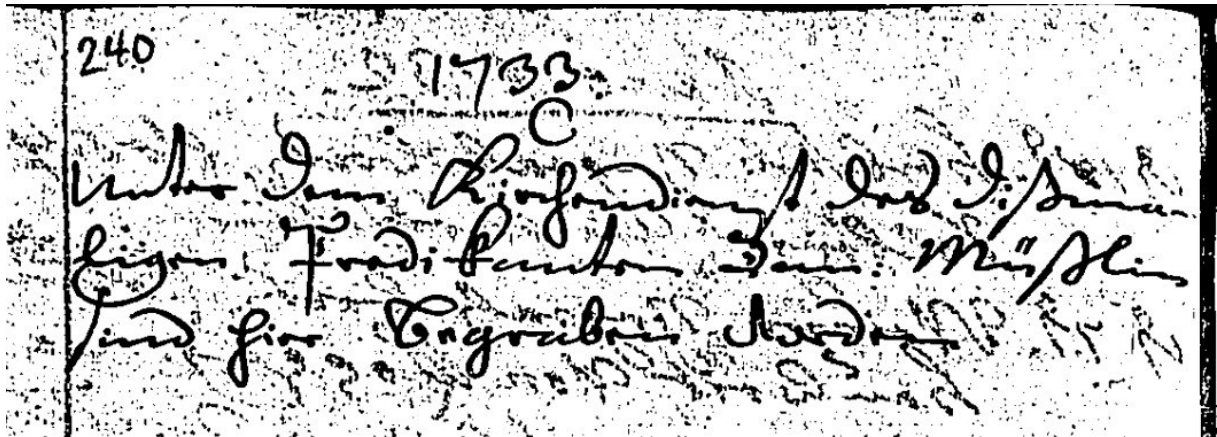 240
1733.
C
Unter dem Kirchendienst des dißma-
ligen Predikanten Sam: Müßlin
sind hier Begraben worden